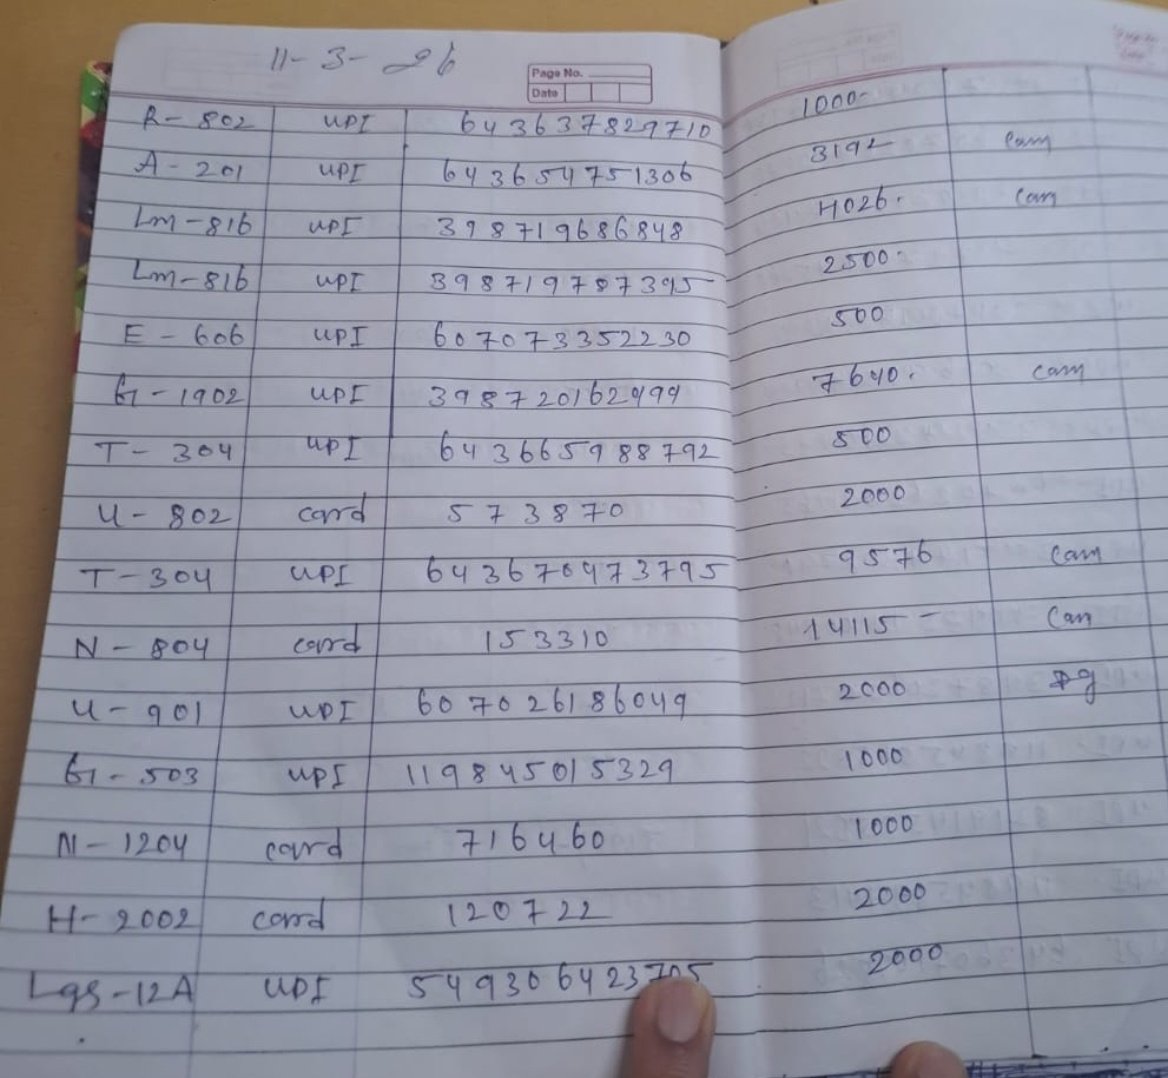 11-3-26
Page No.
Date
R-802 UPI 643637829710 1000-
A-201 UPI 643654751306 3192 Cam
Lm-816 UPI 398719686848 4026. Cam
Lm-816 UPI 398719787395 2500
E-606 UPI 607073352230 500
G-1902 UPI 398720162499 7640. Cam
T-304 UPI 643665988792 500
U-802 card 573870 2000
T-304 UPI 643670473795 9576 Cam
N-804 card 153310 14115- Cam
U-901 UPI 607026186049 2000
G-503 UPI 119845015329 1000
N-1204 card 716460 1000
H-2002 card 120722 2000
Lgs-12A UPI 549306423705 2000